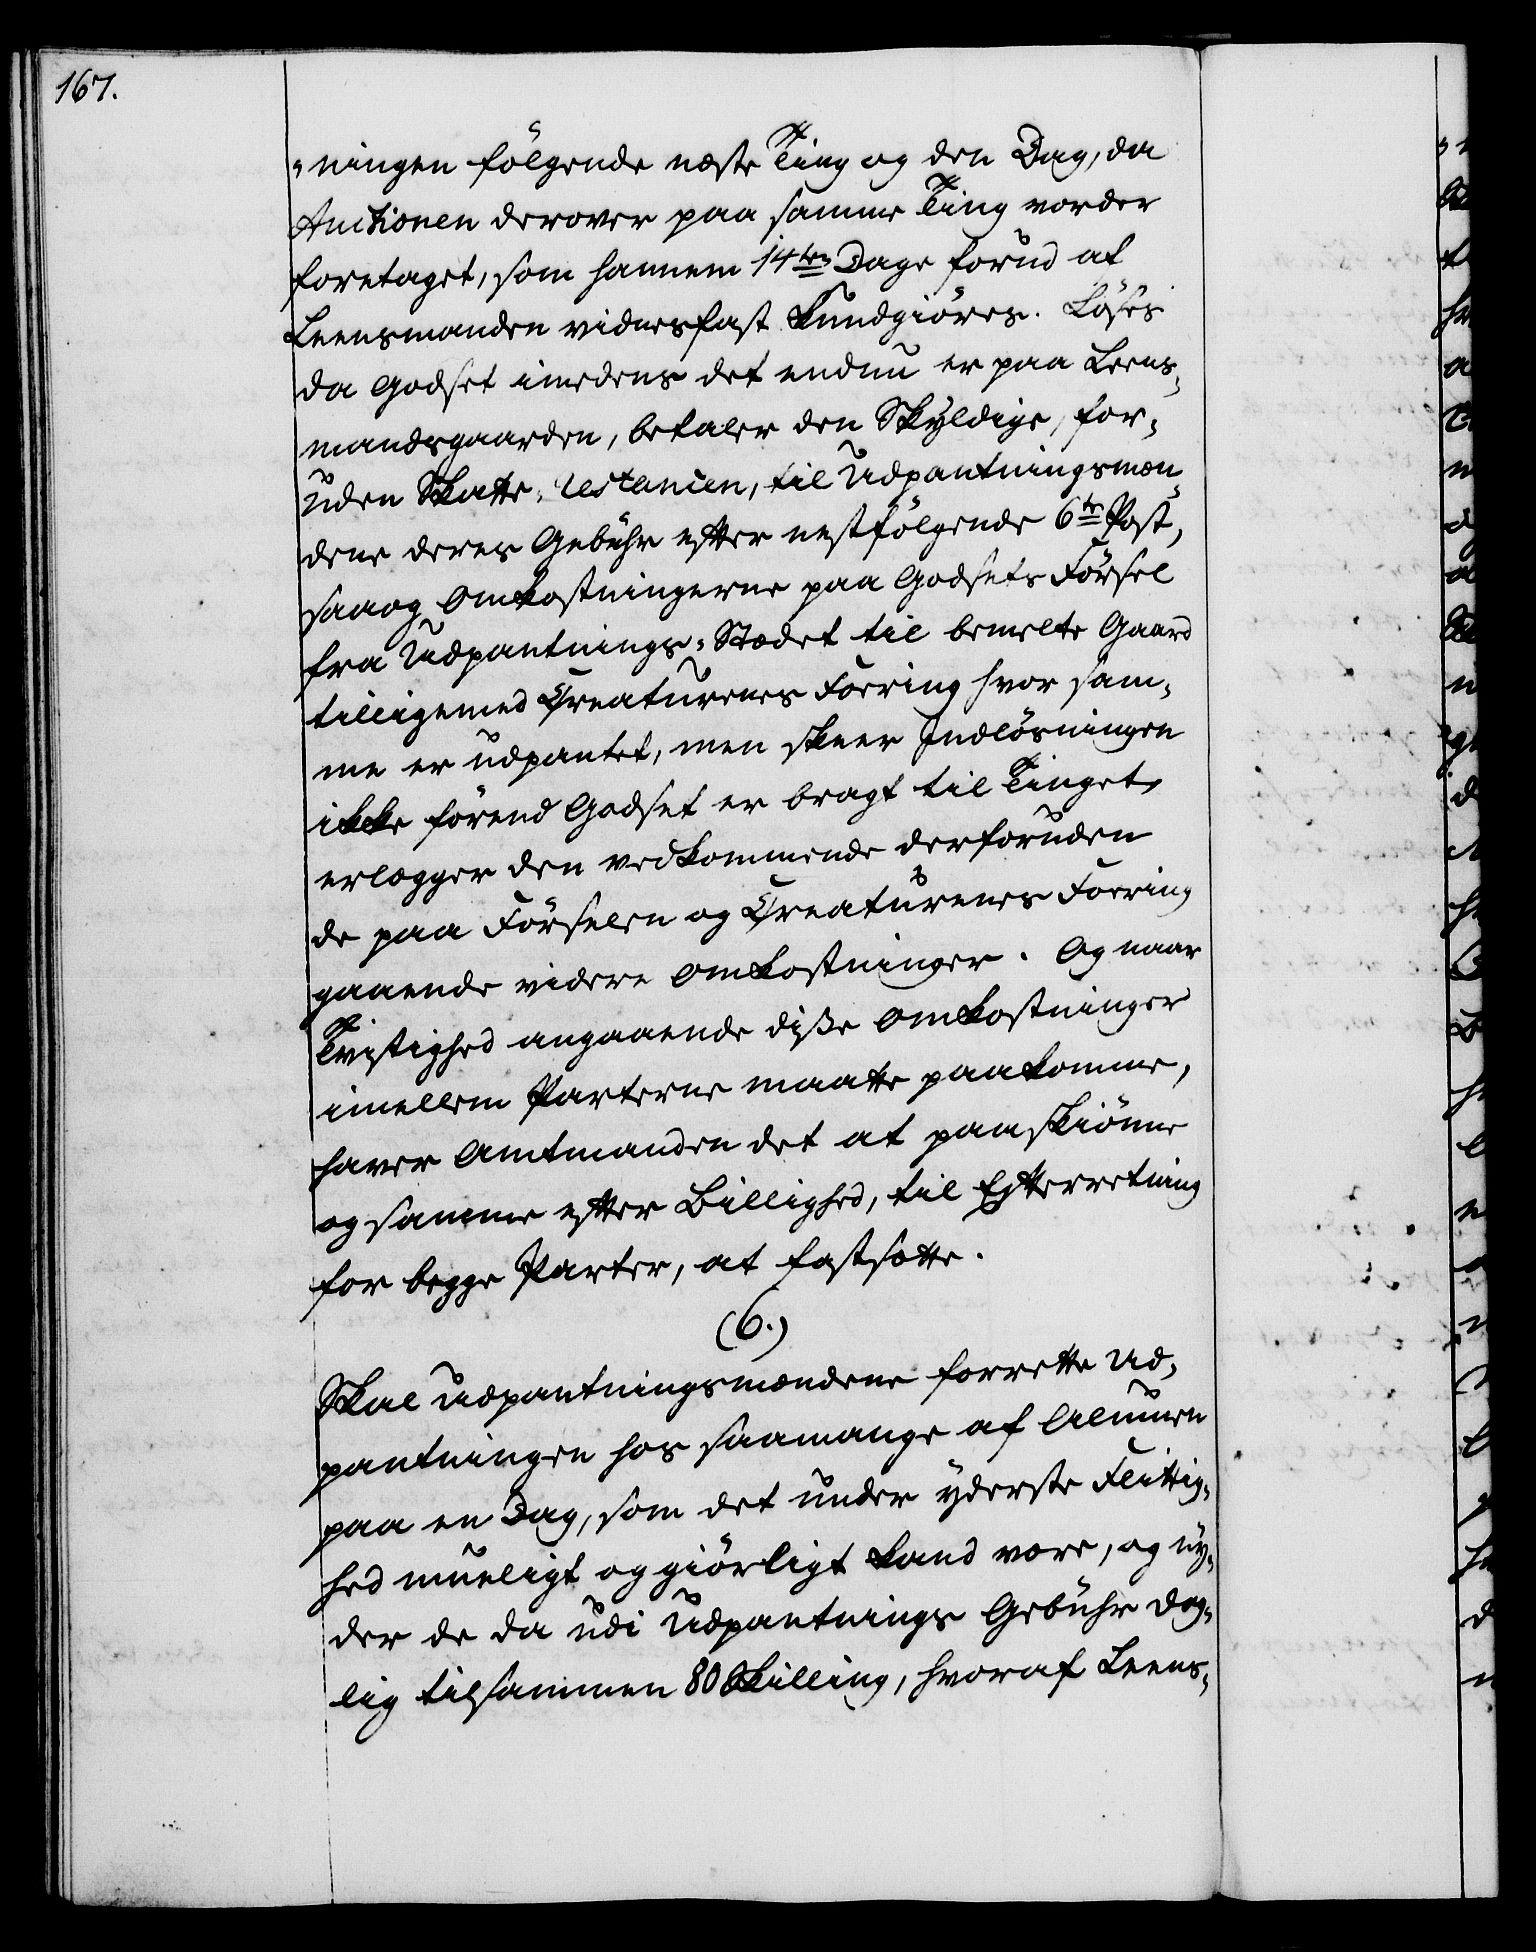 167.
"ningen fölgende næste Ting og den Dag, da
Auctionen derover paa samme Ting vorder
foretaget, som hannem 14ten Dage forud af
Leensmanden vidnesfast kundgiöres. Löses
da Godset imedens det endnu er paa Leens-
mandsgaarden, betaler den Skyldige, for-
uden Skatte-restancen, til Udpantningsmæn-
dene deres Gebühr efter nestfölgende 6te Post,
saaog Omkostningerne paa Godsets Försel
fra Udpantnings-Stædet til bemelte Gaard
tilligemed Creaturenes Foering hvor sam-
me er udpantet, men skeer Indlösningen
ikke förend Godset er bragt til Tinget,
erlægger den vedkommende derforuden
de paa Förselen og Creaturenes Foering
gaaende videre Omkostninger. Og naar
Tvistighed angaaende disse Omkostninger
imellem Parterne maatte paakomme,
haver Amtmanden det at paaskiönne
og samme efter Billighed, til Efterretning
for begge Parter, at fastsætte.
(6.)
Skal Udpantningsmændene forrette Ud-
pantningen hos saamange af Almuen
paa en Dag, som det under yderste Flittig-
hed mueligt og giörligt kand være, og ny-
der de da udi Udpantnings Gebühr dag-
lig tilsammen 80 Skilling, hvoraf Leens-